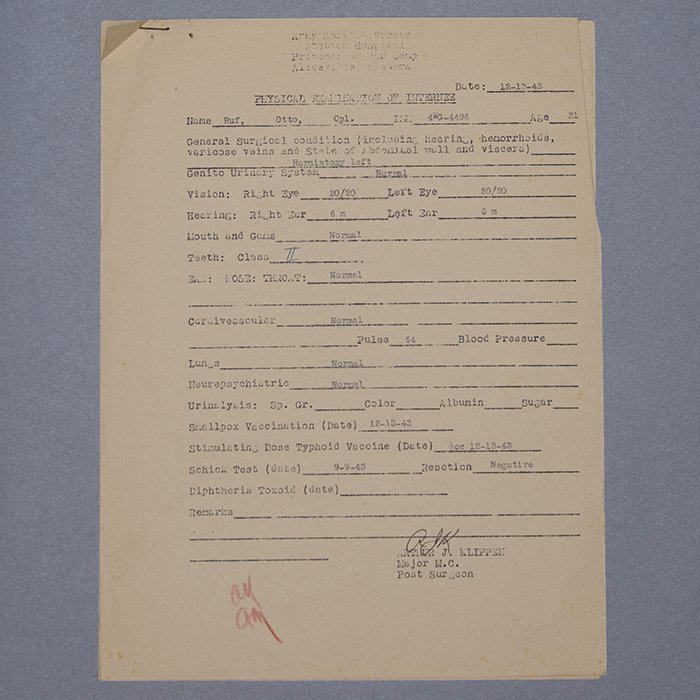 Army Service Forces
Station Hospital
Prisoner of War Camp
Aliceville, Alabama
Date: 12-13-43
PHYSICAL EXAMINATION OF INTERNEE
Name Ruf, Otto, Cpl. ISN 4WG-4496 Age 31
General Surgical condition (including hearing, hemorrhoids,
varicose veins and State of Abdominal wall and viscera)
Herniatomy left
Genito Urinary System Normal
Vision: Right Eye 20/20 Left Eye 20/20
Hearing: Right Ear 6 m Left Ear 6 m
Mouth and Gums Normal
Teeth: Class II
EAR: NOSE: THROAT: Normal
Cardiovascular Normal
Pulse 64 Blood Pressure
Lungs Normal
Neuropsychiatric Normal
Urinalysis: Sp. Gr. Color Albumin Sugar
Smallpox Vaccination (Date) 12-13-43
Stimulating Dose Typhoid Vaccine (Date) ½cc 12-13-43
Schick Test (date) 9-9-43 Reaction Negative
Diphtheria Toxoid (date)
Remarks
AJK
ARTHUR J. KLIPPEN
Major M.C.
Post Surgeon